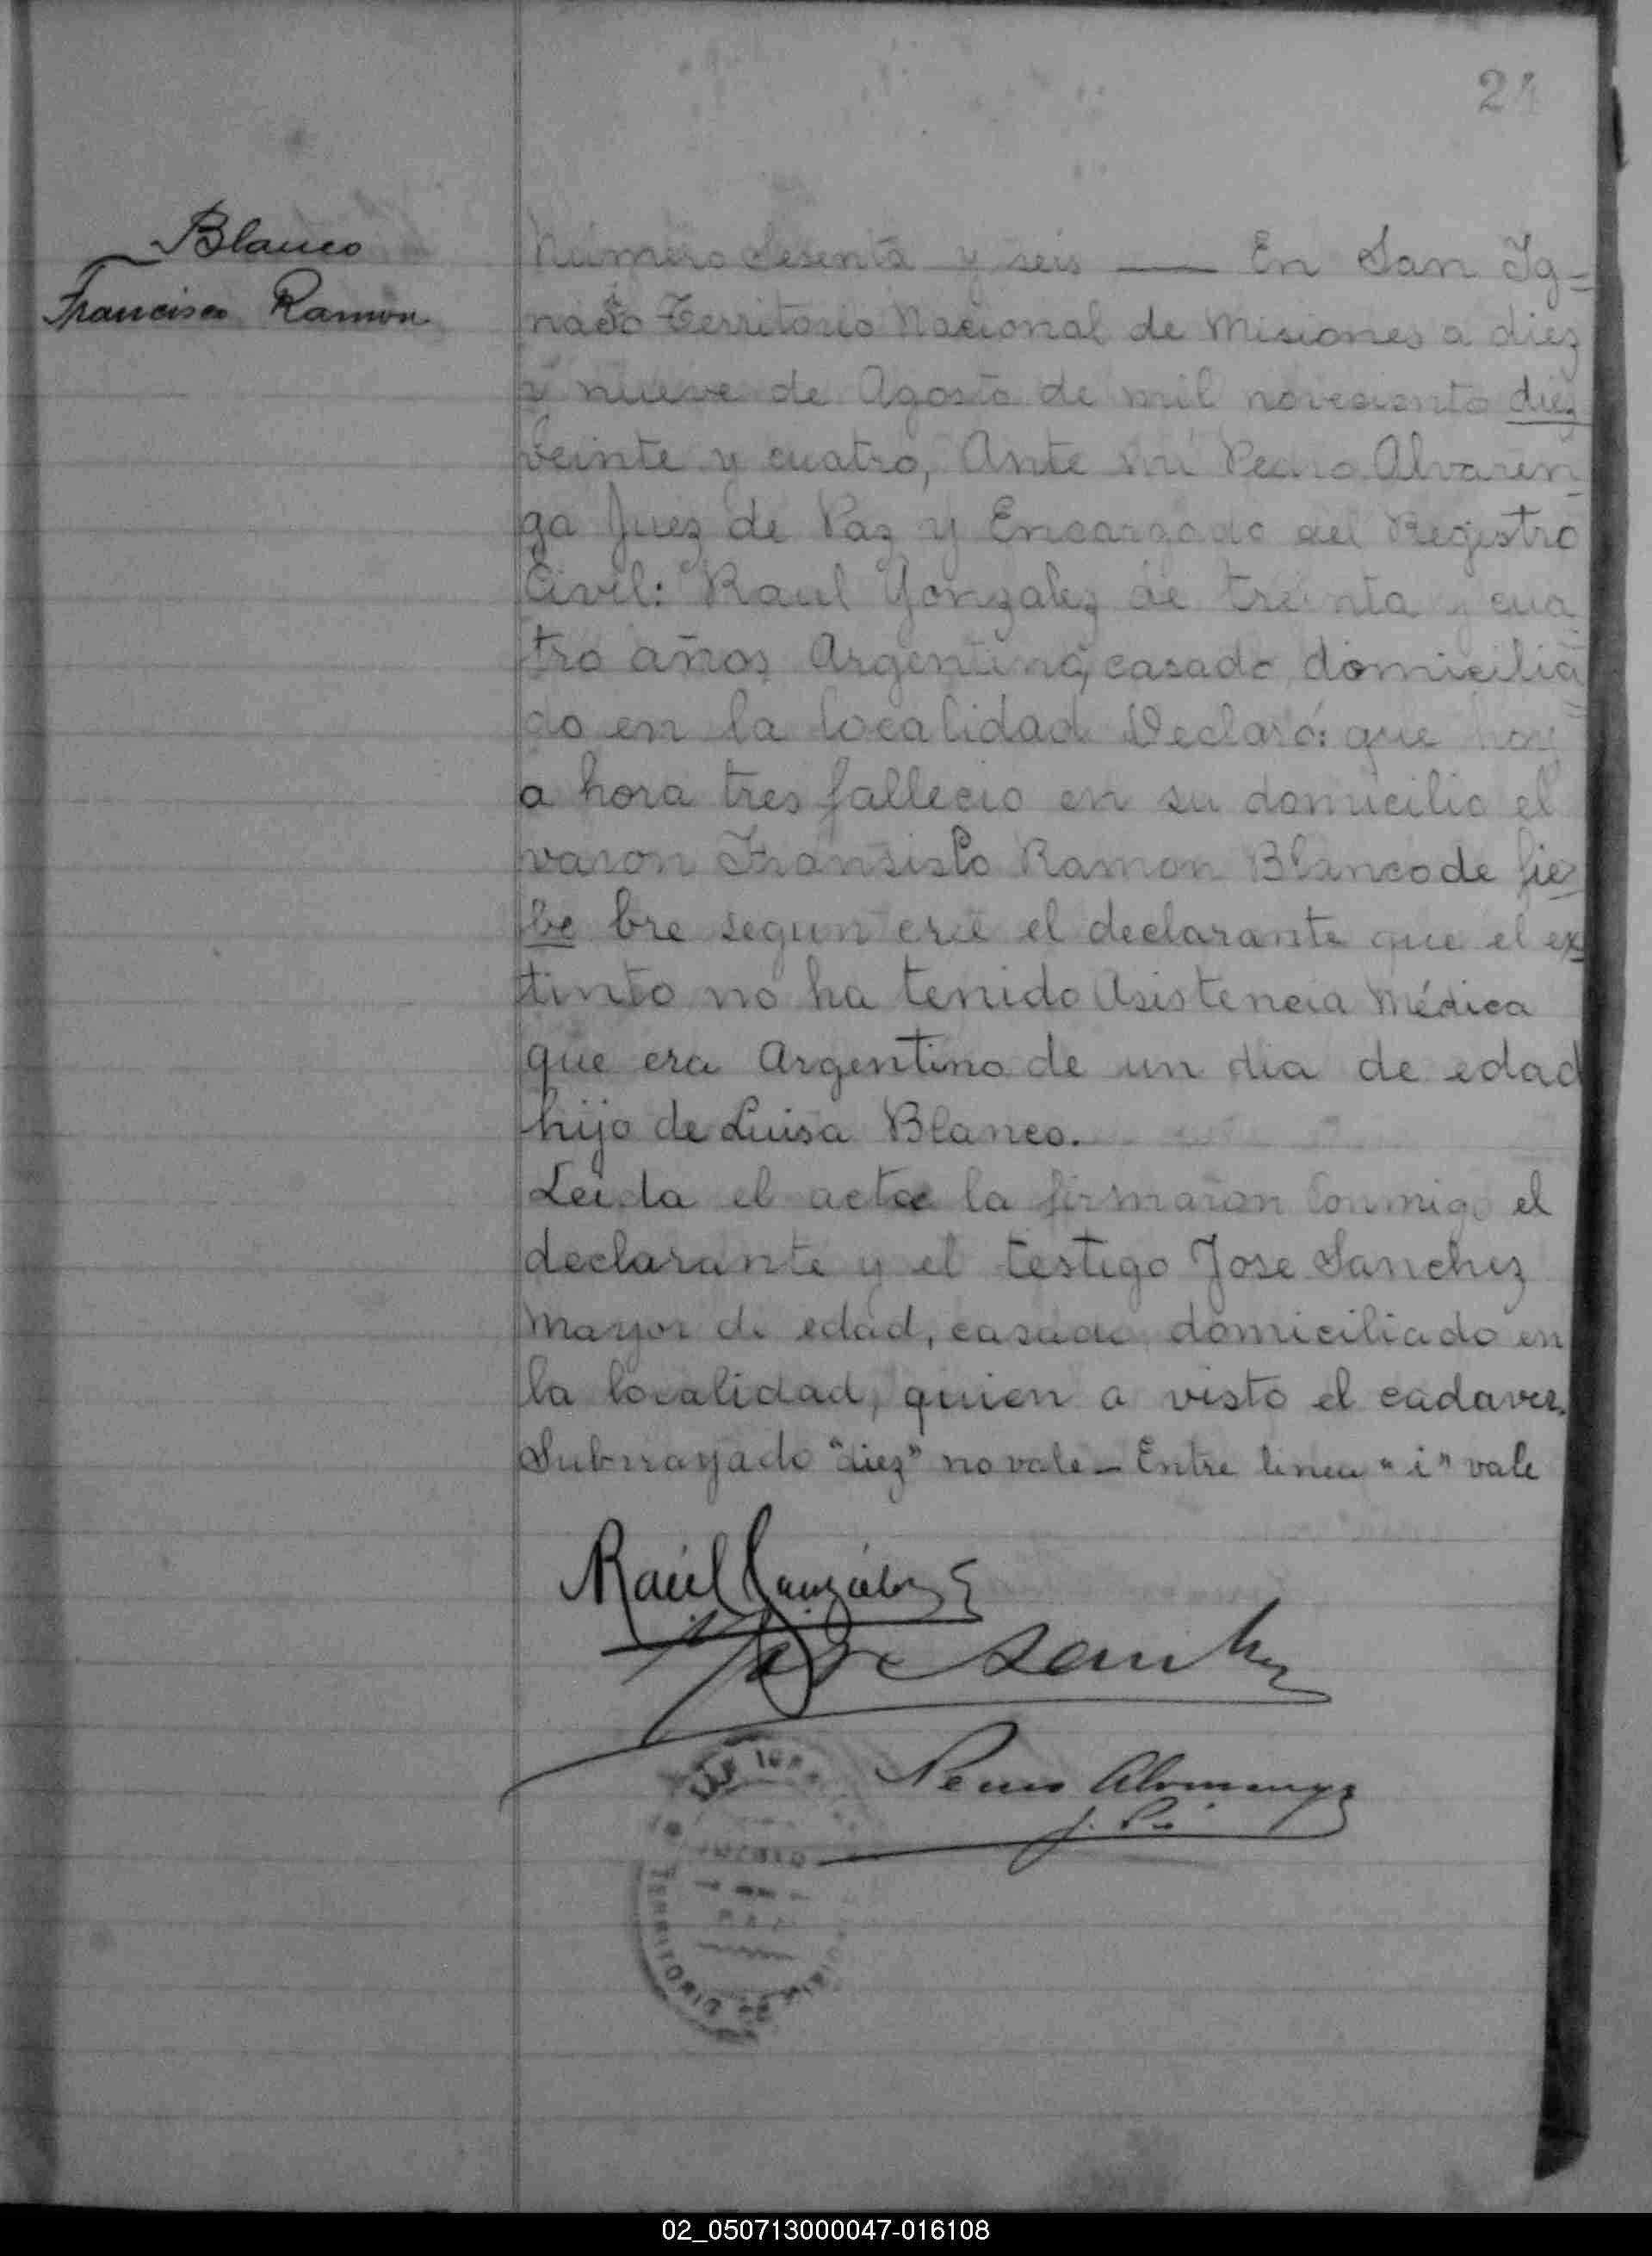 24
Blanco
Francisco Ramon
Número Sesenta y seis — En San Ig-
nacio Territorio Nacional de Misiones a diez
y nueve de Agosto de mil novesiento diez
veinte y cuatro, Ante mi Pedro Alvaren
ga Juez de Paz y Encargado del Registro
Civil: Raul Gonzalez de treinta y cua
tro años Argentino, casado domicilia
do en la localidad Declaró: que hoy
a hora tres fallecio en su domicilio el
varon Fransisco Ramon Blanco de fie
be bre segun cree el declarante que el ex
tinto no ha tenido Asistencia Médica
que era Argentino de un dia de edad
hijo de Luisa Blanco.
Leida el acta la firmaron conmigo el
declarante y el testigo Jose Sanchez
Mayor de edad, casado domiciliado en
la localidad, quien a visto el cadaver.
Subrrayado "diez" no vale - Entre linea "i" vale
Raúl González
Jose Sanchez
Pedro Alvarenga
J. Paz
TERRITORIO
02_050713000047-016108